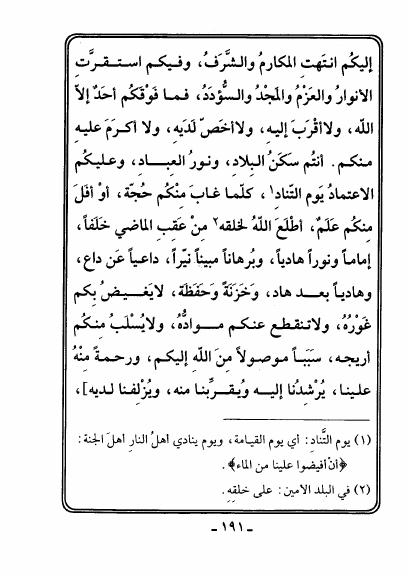 إليكُم انتَهتِ المكارمُ والشَّرَفُ، وفيكم استقرَّتِ
الأنوارُ والعَزْمُ والمَجْدُ والسُّؤدَدُ، فما فَوْقَكُم أحَدٌ إلاّ
الله، ولاأقْرَبَ إليهِ، ولاأخَصّ لَدَيهِ، ولا أكرَمَ عليهِ
منكم. أنتُم سكَنُ البلادِ، ونورُ العِبادِ، وعليكُم
الاعتمادُ يَوم التّنادِ١، كلّما غابَ مِنْكُم حُجّة، أوْ أفَلَ
مِنكُم عَلَمٌ، أطْلَعَ اللهُ لخلقه٢ مِنْ عَقِبِ الماضي خَلَفاً،
إماماً ونوراً هادياً، وبُرهاناً مبيناً نيّراً، داعياً عَن داعٍ،
وهادياً بعد هادٍ، وَخَزَنَةً وَحَفَظَة، لايَغيضُ بِكم
غَوْرُهُ، ولاتنقطع عنكم موادُّهُ، ولايُسْلَبُ منكُم
أريجه، سَبَباً موصولاً مِنَ اللهِ إليكم، ورحمةً مِنْهُ
علينا، يُرْشِدُنا إليه ويُقرِّبنا منه، ويُزْلِفنا لديه]،
(١) يوم التَّناد: أي يوم القيامة، ويوم ينادي أهلُ النار أهلَ الجنة:
﴿أنْ أفيضوا علينا من الماء﴾.
(٢) في البلد الامين: على خلقِهِ.
- ١٩١ -